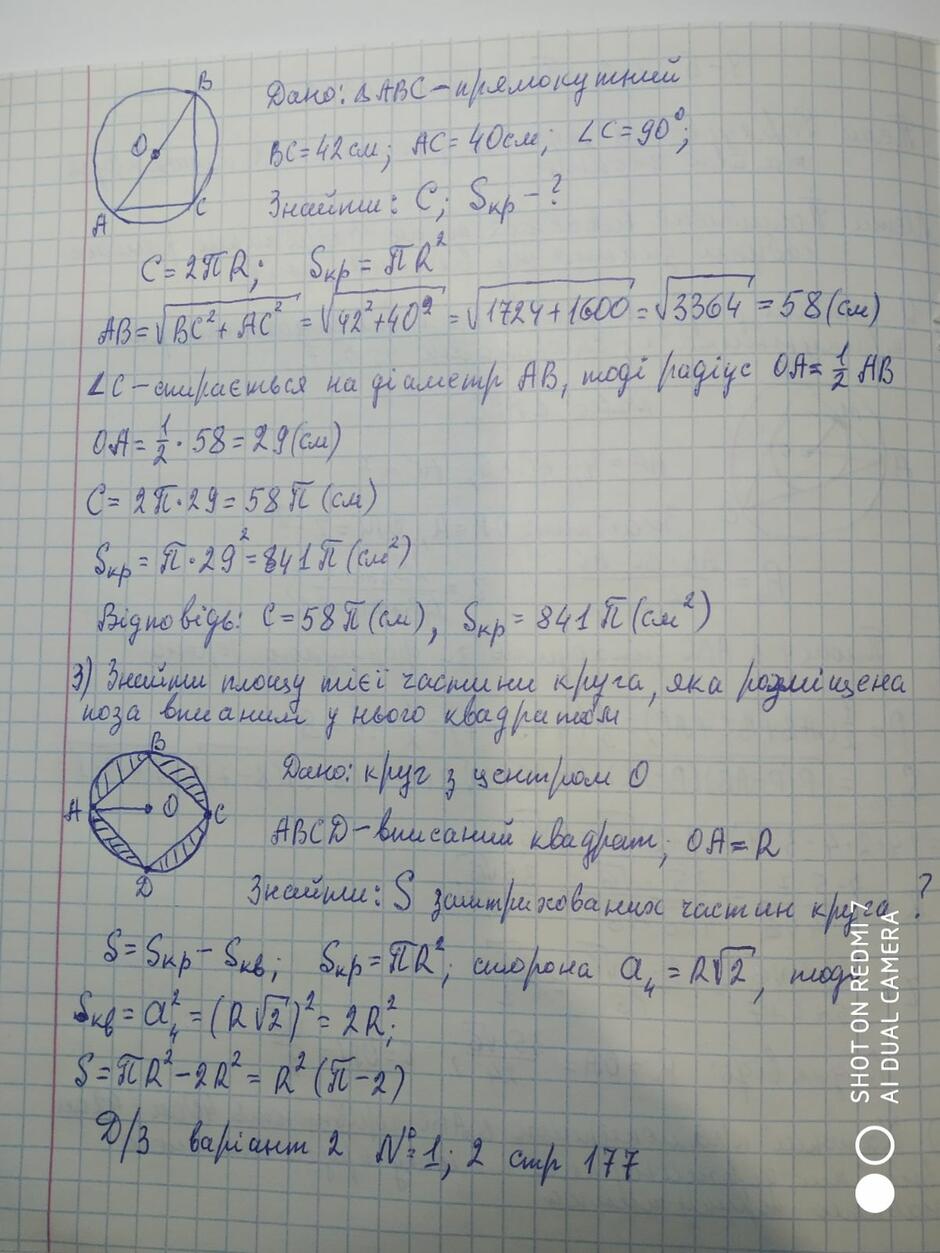 B
O
A
C
Дано: ΔABC – прямокутний
BC = 42 см; AC = 40 см; ∠C = 90°;
Знайти: C; Sкр – ?
C = 2πR; Sкр = πR²
AB = √(BC² + AC²) = √(42² + 40²) = √(1724 + 1600) = √3364 = 58 (см)
∠C – спирається на діаметр AB, тоді радіус OA = 1/2 AB
OA = 1/2 · 58 = 29 (см)
C = 2π · 29 = 58π (см)
Sкр = π · 29² = 841π (см²)
Відповідь: C = 58π (см), Sкр = 841π (см²)
3) Знайти площу тієї частини круга, яка розміщена
поза вписаним у нього квадратом
B
A
O
C
D
Дано: круг з центром O
ABCD – вписаний квадрат; OA = R
Знайти: S заштрихованих частин круга?
S = Sкр – Sкв; Sкр = πR²; сторона a₄ = R√2, тоді
Sкв = a₄² = (R√2)² = 2R²;
S = πR² – 2R² = R² (π – 2)
Д/З варіант 2 № 1; 2 стр 177
SHOT ON REDMI 7
AI DUAL CAMERA